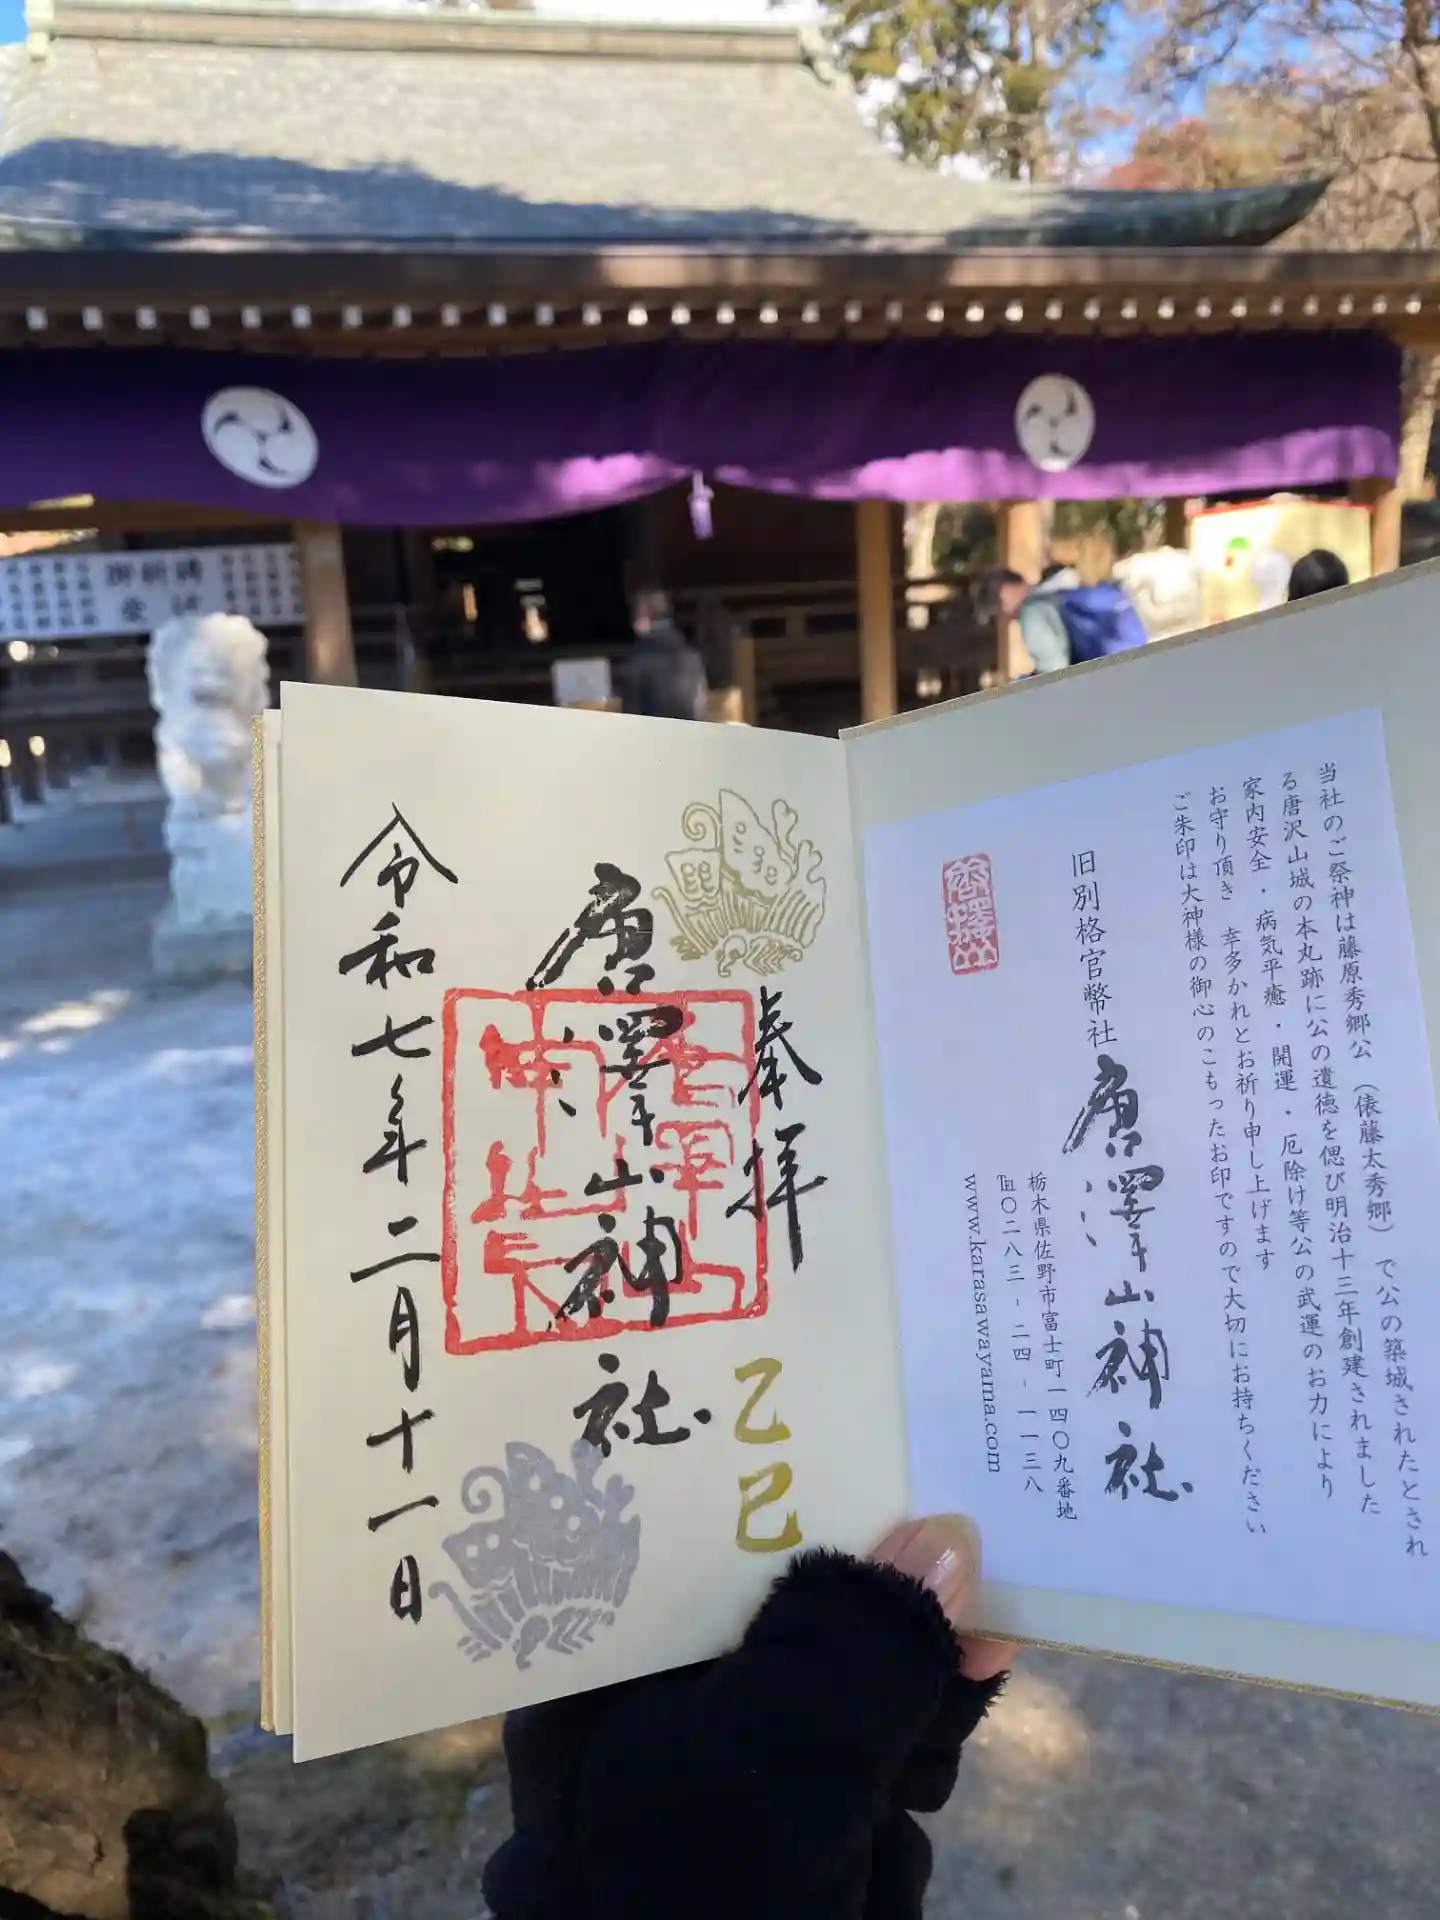 当社のご祭神は藤原秀郷公（俵藤太秀郷）で公の築城されたとされ
る唐沢山城の本丸跡に公の遺徳を偲び明治十三年創建されました
家内安全・病気平癒・開運・厄除け等公の武運のお力により
お守り頂き 幸多かれとお祈り申し上げます
ご朱印は大神様の御心のこもったお印ですので大切にお持ちください
旧別格官幣社 唐澤山神社
栃木県佐野市富士町一四〇九番地
℡〇二八三-二四-一一三八
www.karasawayama.com
奉拝
乙巳
唐澤山神社
令和七年二月十一日